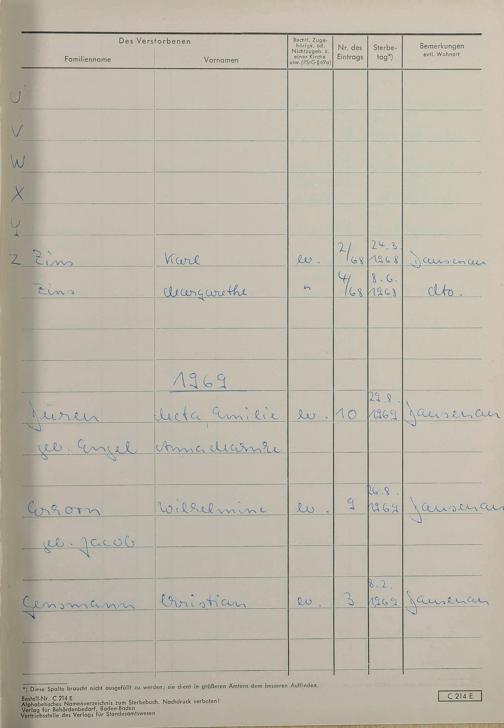 Des Verstorbenen
Familienname Vornamen
Rechtl. Zuge-
hörigk. od.
Nichtzugeh. z.
einer Kirche
Nr. des
Eintrags
Sterbe-
tag*)
Bemerkungen
evtl. Wohnort
U
V
W
X
Y
Z Zins Karl ev. 2/68 24.3. 1968 Dausenau
Zins Margarethe " 4/68 8.6. 1968 dto.
1969
Düren Meta Emilie ev. 10 29.8. 1969 Dausenau
geb. Engel
Wilhelmine ev. 9 26.8. 1969 Dausenau
geb. Jacob
Gensmann Christian ev. 3 8.2. 1969 Dausenau
*) Diese Spalte braucht nicht ausgefüllt zu werden; sie dient in größeren Ämtern dem besseren Auffinden.
Bestell-Nr. C 214 E
Alphabetisches Namenverzeichnis zum Sterbebuch. Nachdruck verboten!
Verlag für Behördenbedarf, Baden-Baden
Vertriebsstelle des Verlags für Standesamtswesen
C 214 E